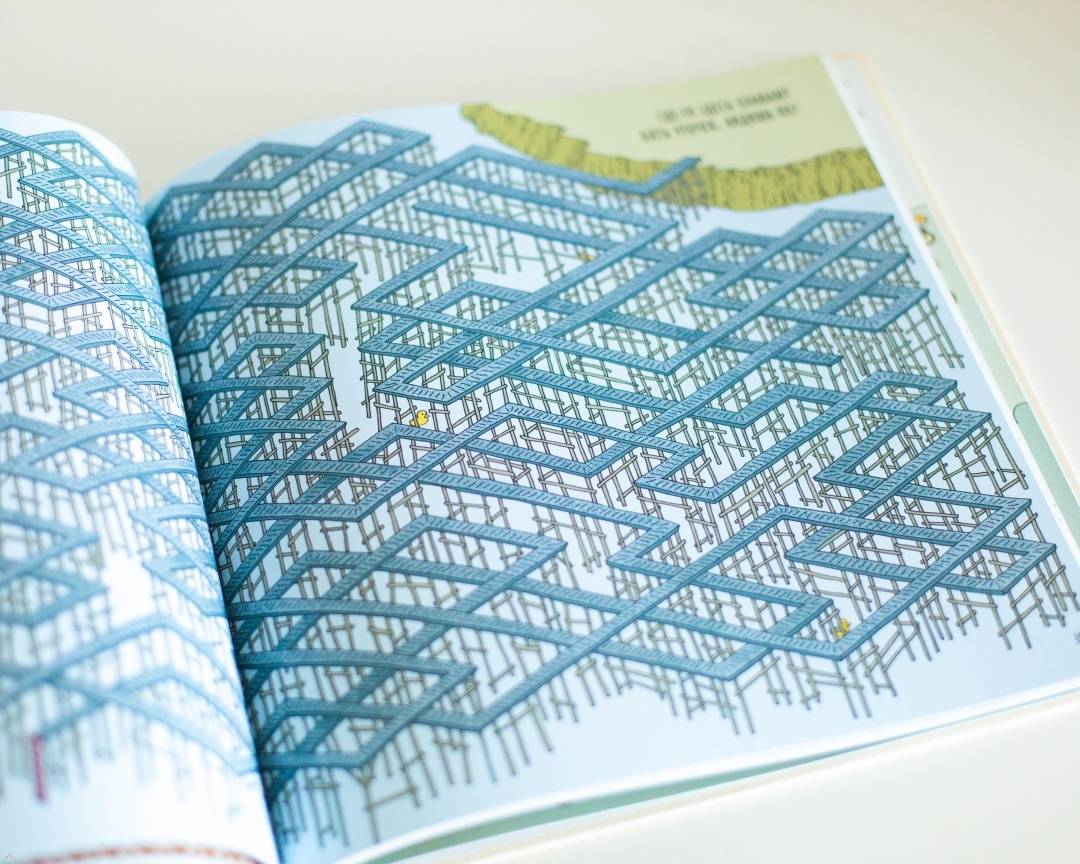 ГДЕ-ТО ЗДЕСЬ ПЛАВАЮТ
ПЯТЬ УТОЧЕК. НАЙДЁШЬ ИХ?